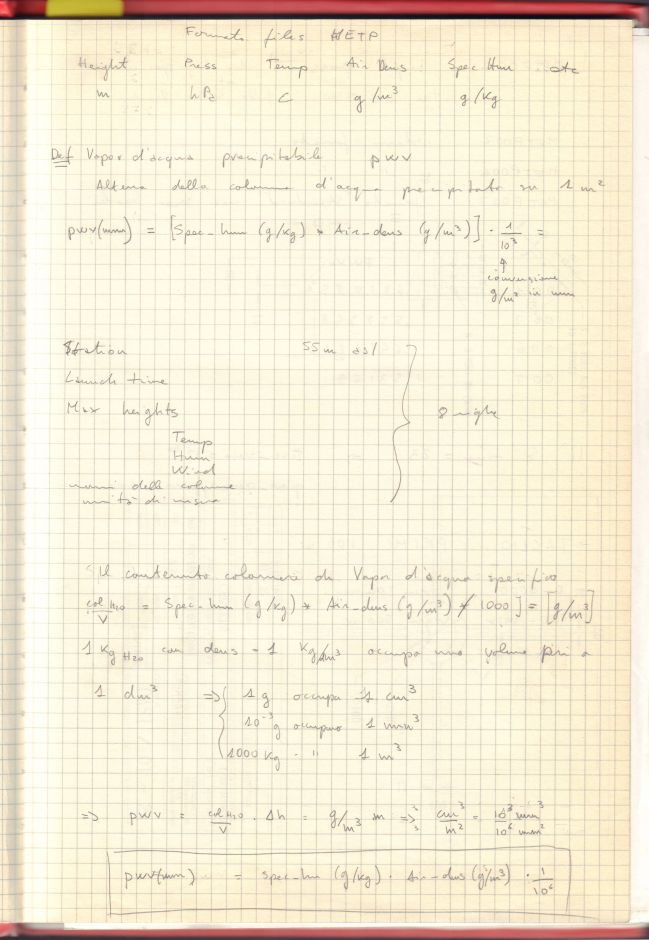 Formato files HETP
Height Press Temp Air Dens Spec Hum etc
m hPa C g/m³ g/Kg
Def Vapor d'acqua precipitabile pwv
Altezza della colonna d'acqua precipitata su 1 m²
pwv(mm) = [Spec_hum (g/kg) * Air_dens (g/m³)] · 1/10³ =
conversione
g/m² in mm
Station 55 m asl
Launch time
Max heights 8 righe
Temp
Hum
Wind
nomi delle colonne
unità di misura
Il contenuto colonnare di Vapor d'acqua specifico
col H2O/V = Spec_hum (g/kg) * Air_dens (g/m³) / 1000] = [g/m³]
1 Kg H2O con dens = 1 Kg/dm³ occupa uno volume pari a
1 dm³ => { 1 g occupa 1 cm³
10⁻³ g occupano 1 mm³
1000 Kg " 1 m³
=> pwv = col H2O/V · Δh = g/m³ m => cm³/m² = 10³ mm³/10⁶ mm²
pwv(mm) = spec_hum (g/kg) · Air_dens (g/m³) · 1/10⁶